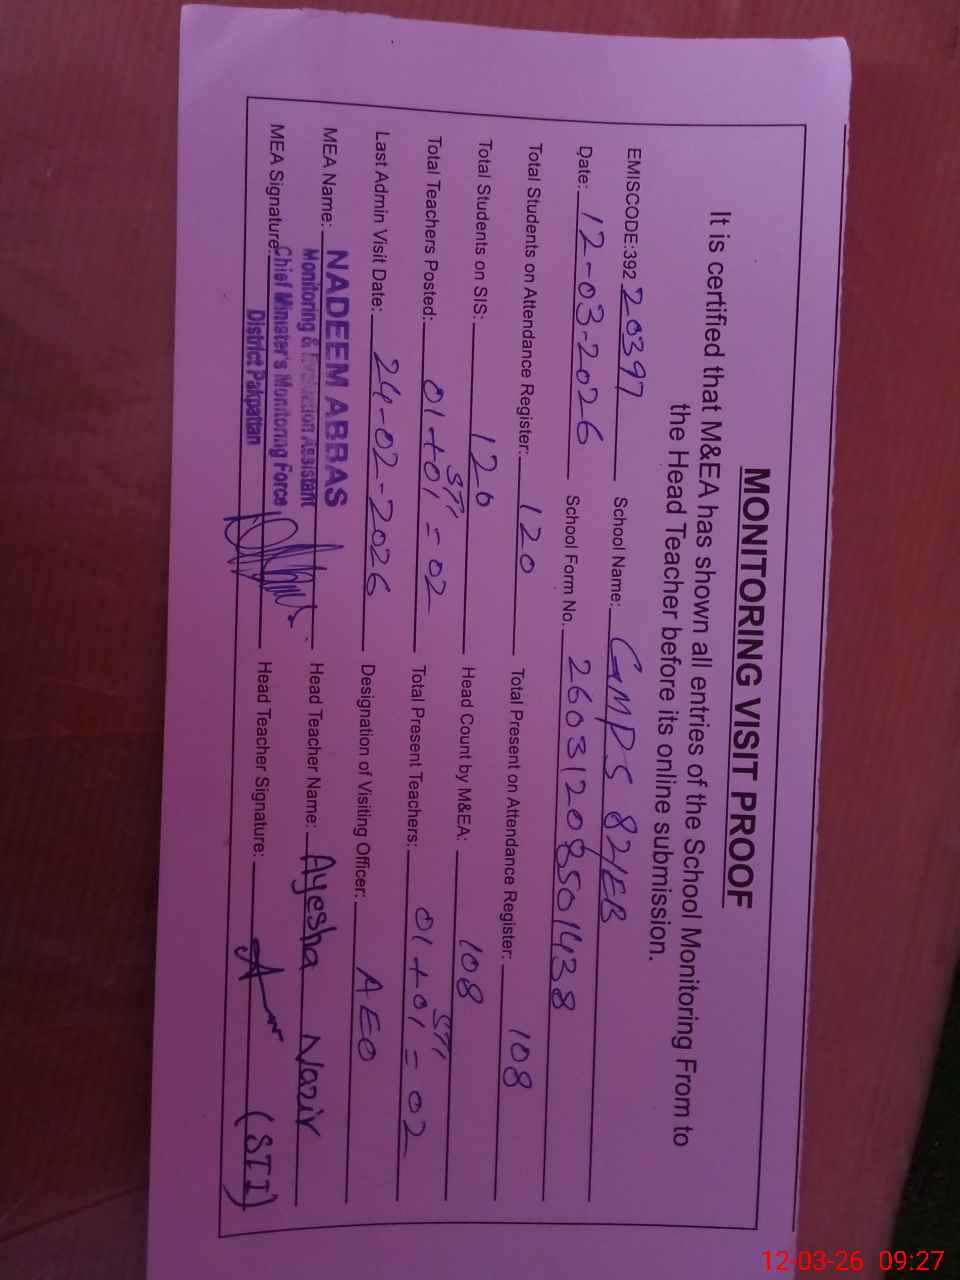 MONITORING VISIT PROOF
It is certified that M&EA has shown all entries of the School Monitoring From to
the Head Teacher before its online submission.
EMISCODE:392 20397 School Name: GMPS 82/EB
Date: 12-03-2026 School Form No. 26031208501438
Total Students on Attendance Register: 120 Total Present on Attendance Register: 108
Total Students on SIS: 120 Head Count by M&EA: 108
Total Teachers Posted: 01+01 STI = 02 Total Present Teachers: 01+01 STI = 02
Last Admin Visit Date: 24-02-2026 Designation of Visiting Officer: AEO
MEA Name: NADEEM ABBAS Head Teacher Name: Ayesha Nazir
Monitoring & Evaluation Assistant
MEA Signature: Chief Minister's Monitoring Force Head Teacher Signature: (STI)
District Pakpattan
12-03-26 09:27